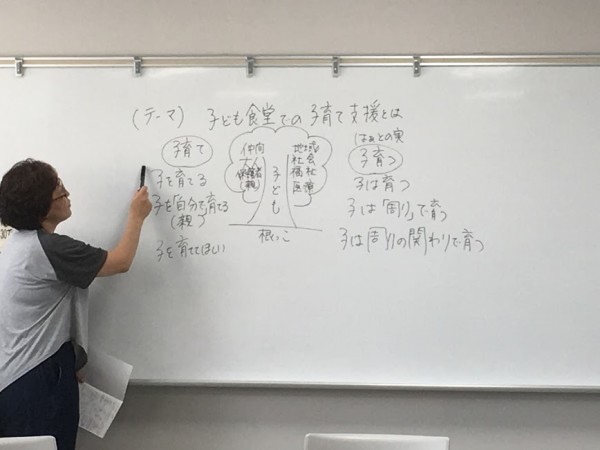 (テーマ) 子ども食堂での子育て支援とは
子育て
子を育てる
子を「自分で」育てる
(親)
子を育ててほしい
仲間
保護者
(親)
子ども
地域
社会
福祉
医療
根っこ
ほぉとの実
子育つ
子は育つ
子は「周り」で育つ
子は周りの関わりで育つ